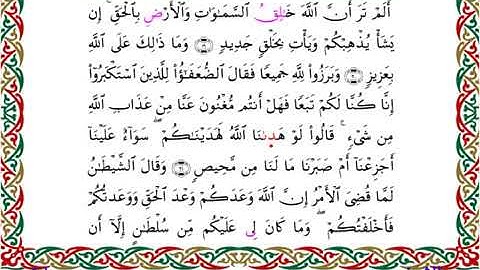 أَلَمْ تَرَ أَنَّ اللَّهَ خَـٰلِقُ السَّمَـٰوَٰتِ وَالْأَرْضِ بِالْحَقِّ ۚ إِن
يَشَأْ يُذْهِبْكُمْ وَيَأْتِ بِخَلْقٍ جَدِيدٍ وَمَا ذَٰلِكَ عَلَى اللَّهِ
بِعَزِيزٍ وَبَرَزُوا۟ لِلَّهِ جَمِيعًا فَقَالَ الضُّعَفَـٰٓؤُا۟ لِلَّذِينَ اسْتَكْبَرُوٓا۟
إِنَّا كُنَّا لَكُمْ تَبَعًا فَهَلْ أَنتُم مُّغْنُونَ عَنَّا مِنْ عَذَابِ اللَّهِ
مِن شَىْءٍ ۚ قَالُوا۟ لَوْ هَدَىٰنَا اللَّهُ لَهَدَيْنَـٰكُمْ ۖ سَوَآءٌ عَلَيْنَآ
أَجَزِعْنَآ أَمْ صَبَرْنَا مَا لَنَا مِن مَّحِيصٍ وَقَالَ الشَّيْطَـٰنُ
لَمَّا قُضِىَ الْأَمْرُ إِنَّ اللَّهَ وَعَدَكُمْ وَعْدَ الْحَقِّ وَوَعَدتُّكُمْ
فَأَخْلَفْتُكُمْ ۖ وَمَا كَانَ لِى عَلَيْكُم مِّن سُلْطَـٰنٍ إِلَّآ أَن